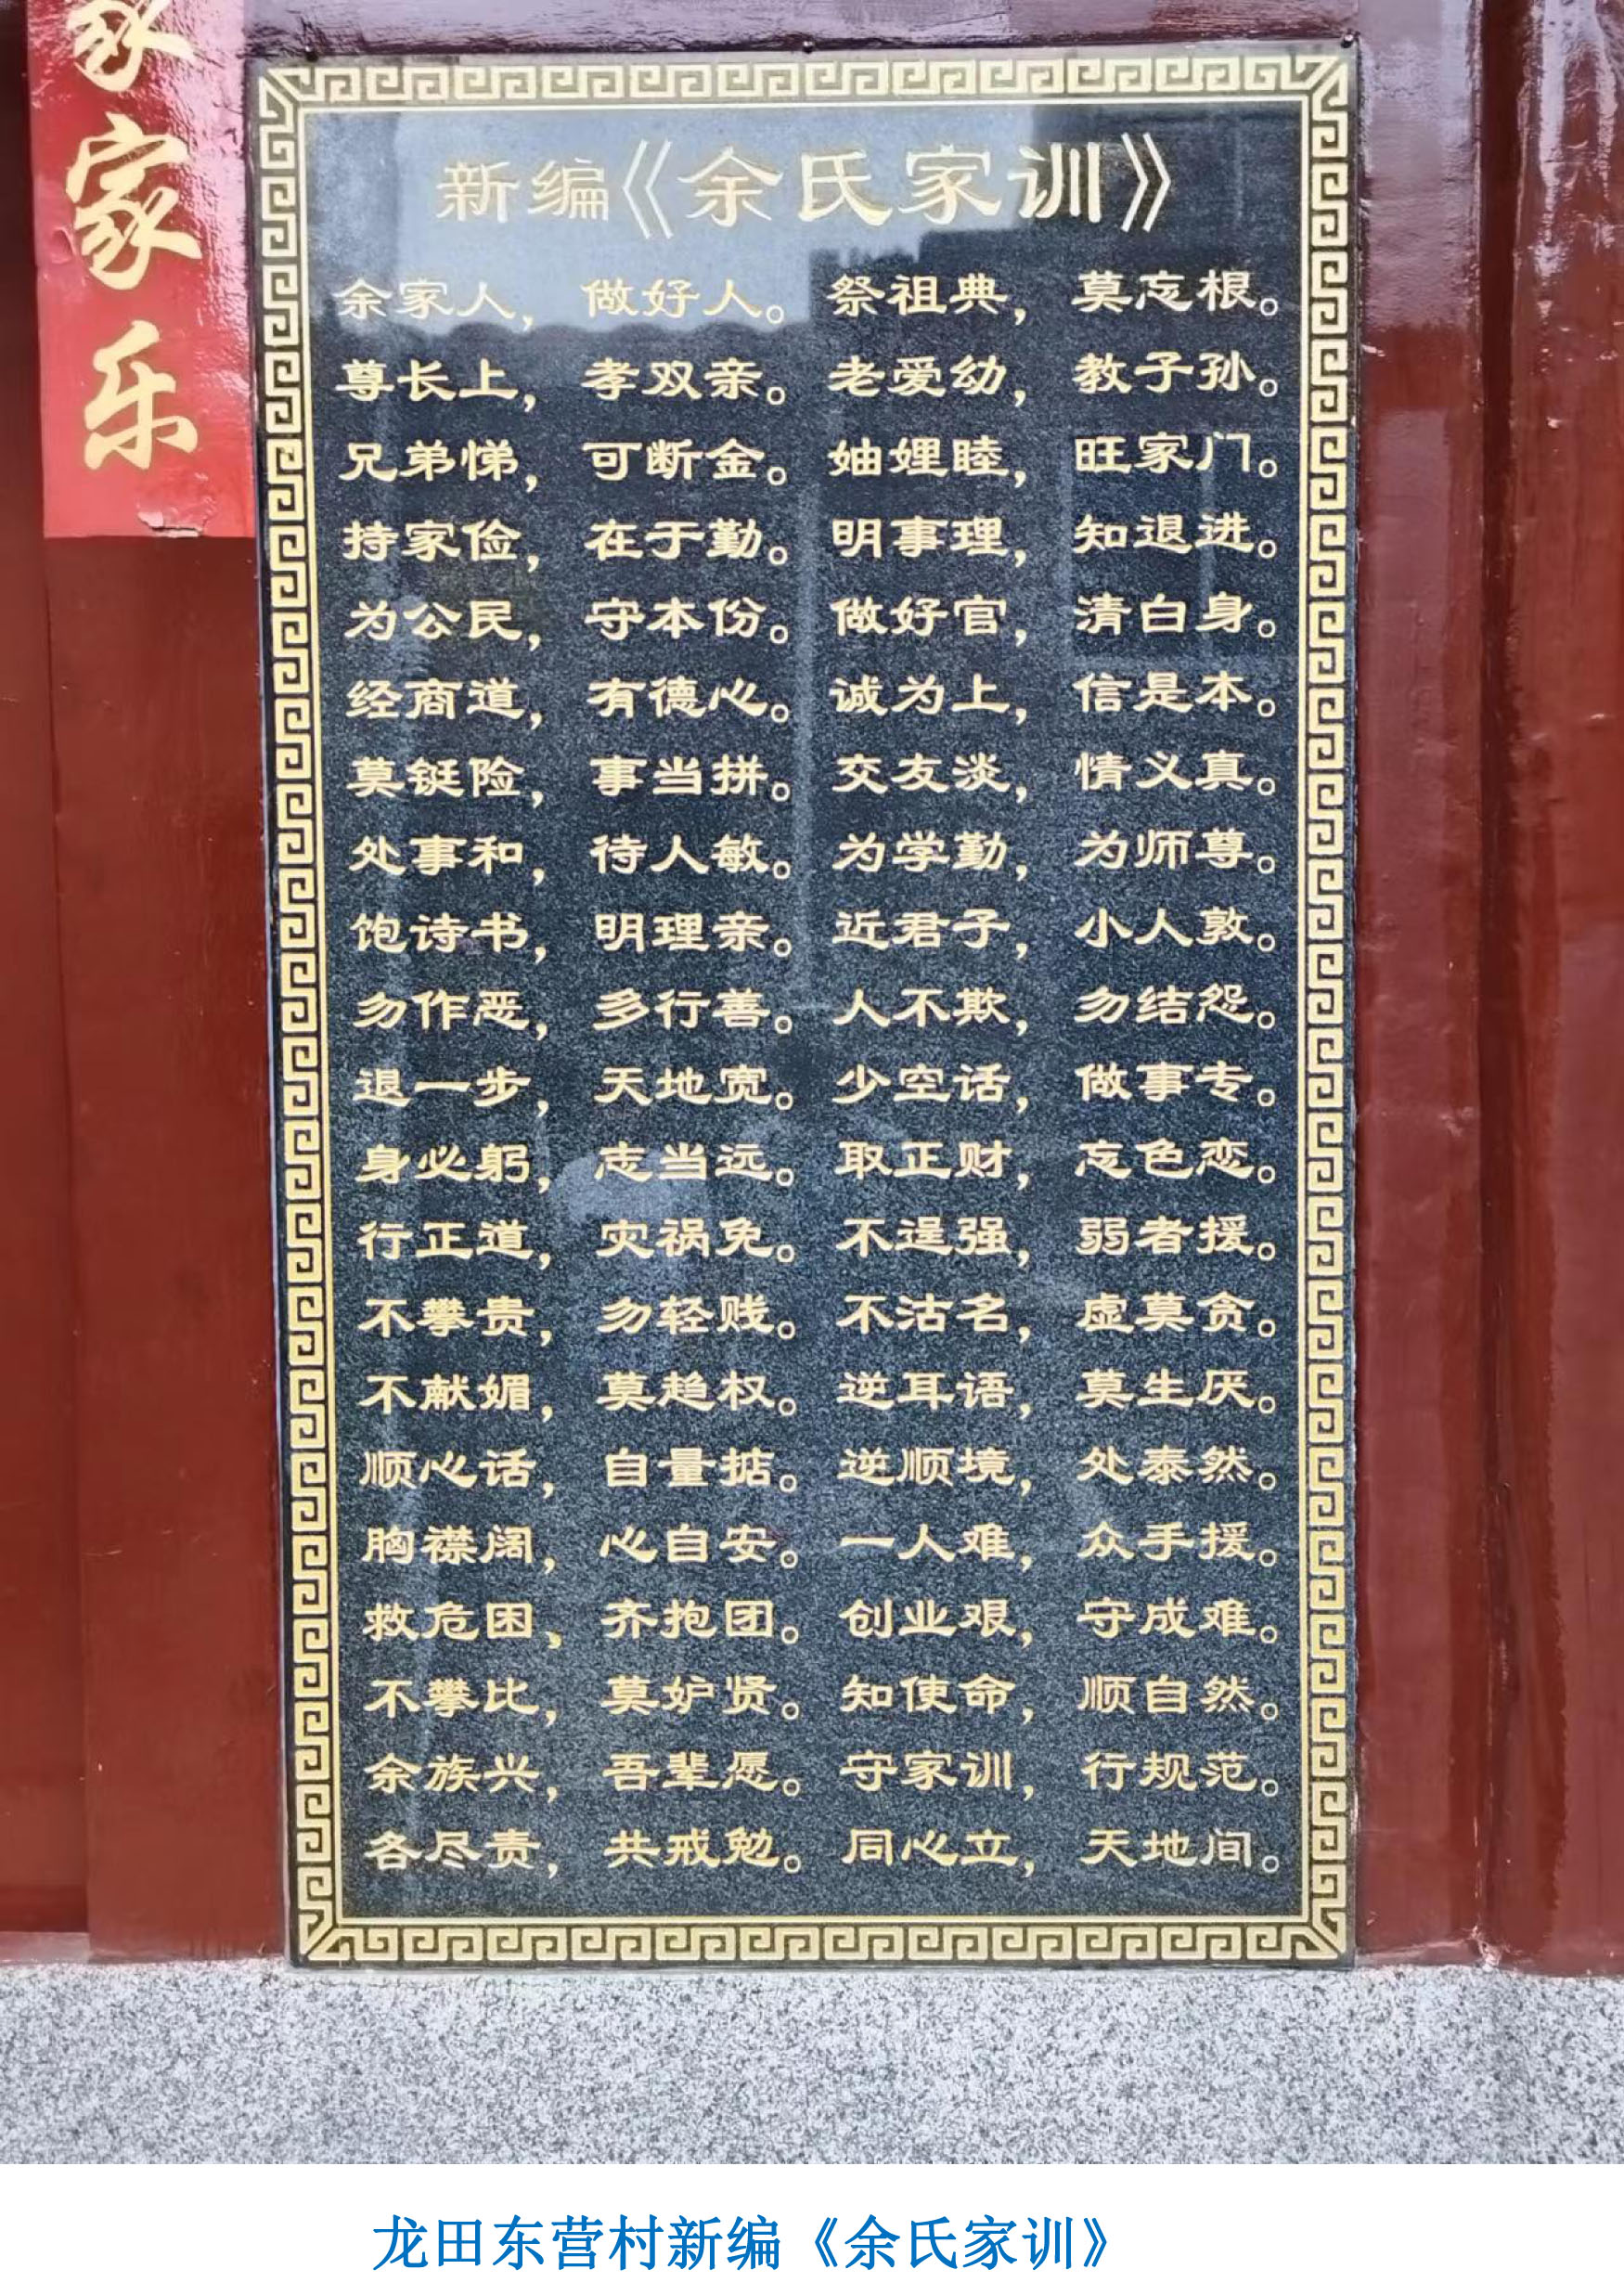 家家乐
新编《余氏家训》
余家人，做好人。祭祖典，莫忘根。
尊长上，孝双亲。老爱幼，教子孙。
兄弟悌，可断金。妯娌睦，旺家门。
持家俭，在于勤。明事理，知退进。
为公民，守本份。做好官，清白身。
经商道，有德心。诚为上，信是本。
莫铤险，事当拼。交友淡，情义真。
处事和，待人敏。为学勤，为师尊。
饱诗书，明理亲。近君子，小人敦。
勿作恶，多行善。人不欺，勿结怨。
退一步，天地宽。少空话，做事专。
身必躬，志当远。取正财，忘色恋。
行正道，灾祸免。不逞强，弱者援。
不攀贵，勿轻贱。不沽名，虚莫贪。
不献媚，莫趋权。逆耳语，莫生厌。
顺心话，自量掂。逆顺境，处泰然。
胸襟阔，心自安。一人难，众手援。
救危困，齐抱团。创业艰，守成难。
不攀比，莫妒贤。知使命，顺自然。
余族兴，吾辈愿。守家训，行规范。
各尽责，共戒勉。同心立，天地间。
龙田东营村新编《余氏家训》